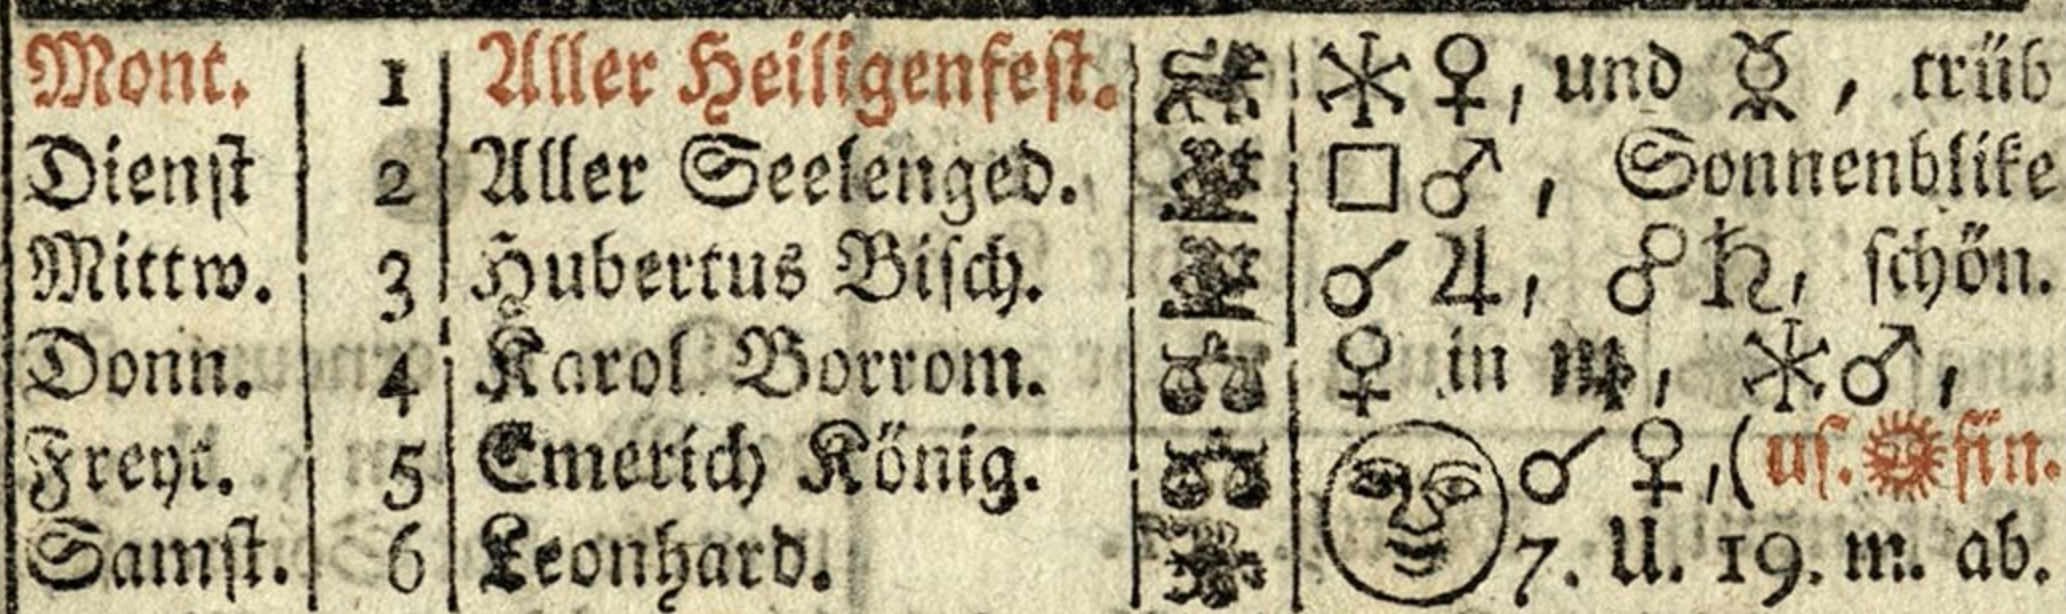 Mont. 1 Aller Heiligenfest. ⚹ ♀, und ☿, trüb
Dienst 2 Aller Seelenged. □ ♂, Sonnenblike
Mittw. 3 Hubertus Bisch. ☌ ♃, ☍ ♄, schön.
Donn. 4 Karol Borrom. ♀ in ♍, ⚹ ♂,
Freyt. 5 Emerich König. ☌ ♀, (us. ☉ fin.
Samst. 6 Leonhard. 7. U. 19. m. ab.